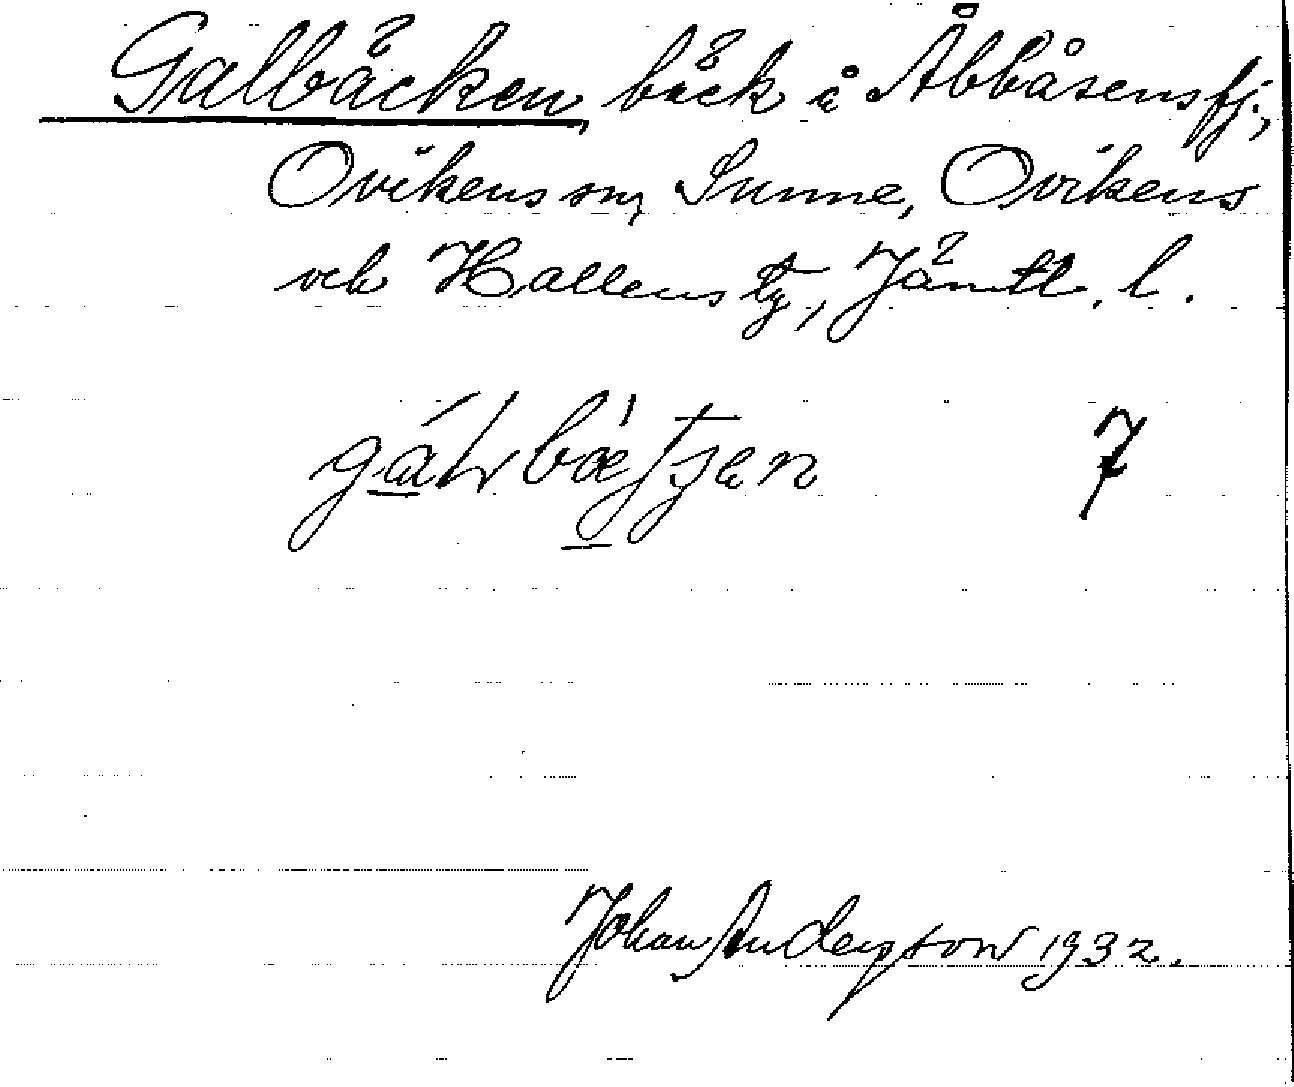 Galbäcken, bäck i Åbbåsens fj.,
Ovikens sn, Sunne, Ovikens
och Hallens tg, Jämtl. l.
7
Johan Anderson 1932.